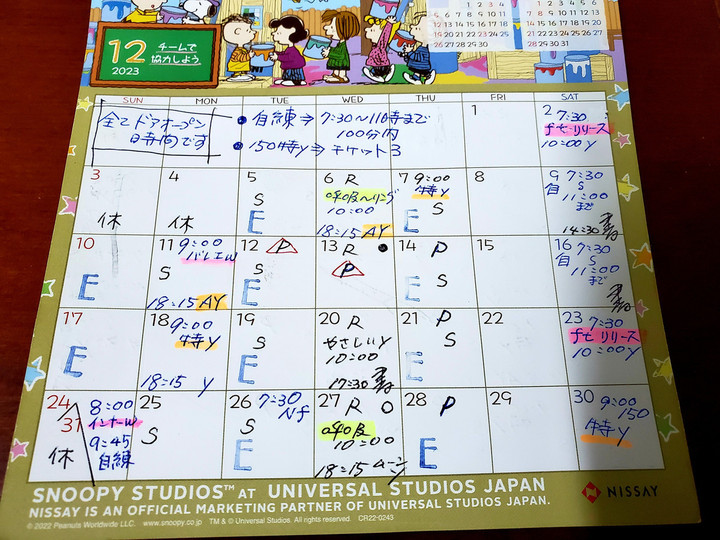 12
2023
チームで
協力しよう
SUN MON TUE WED THU FRI SAT
全てドアオープン
時間です
●自練⇒7:30~11時まで
100分内
●150特y⇒チケット3
1
2 7:30
リリース
10:00y
3
休
4
休
5
S
E
6 R
呼吸~リング
10:00
18:15 AY
7 9:00
特y
E S
8
9 7:30
自 S
11:00
まで
14:30
10
E
11 9:00
バレエW
S
18:15 AY
12 P
S
E
13 R ●
P
14 P
S
E
15
16 7:30
自 S
11:00
まで
17
E
18 9:00
特y
18:15 y
19
S
E
20 R
やさしいy
10:00
17:30
21 P
S
E
22
23 7:30
リリース
10:00y
24
31
休
8:00
インナーW
9:45
自練
25
S
26 7:30
S
E
27 R O
呼吸
10:00
18:15 ムーン
y
28 P
E
29
30 9:00
150
特y
SNOOPY STUDIOS™ AT UNIVERSAL STUDIOS JAPAN
NISSAY IS AN OFFICIAL MARKETING PARTNER OF UNIVERSAL STUDIOS JAPAN.
NISSAY
© 2022 Peanuts Worldwide LLC. www.snoopy.co.jp TM & © Universal Studios. All rights reserved. CR22-0243